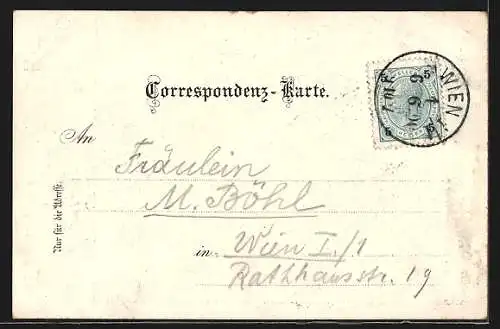 Correspondenz-Karte.
5 5
5
WIEN
An
Fräulein
M. Böhl
in Wien I./1
Rathhausstr. 19
Nur für die Adresse.